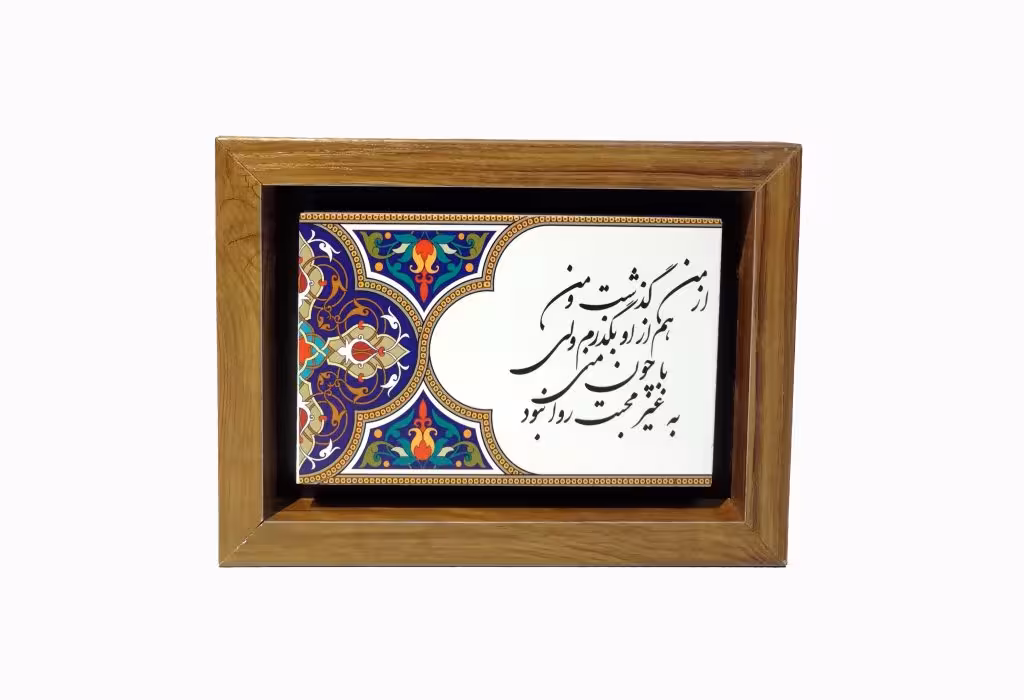 از من گذشت و من
هم از او بگذرم ولی
با چون منی
به غیر محبت روا نبود